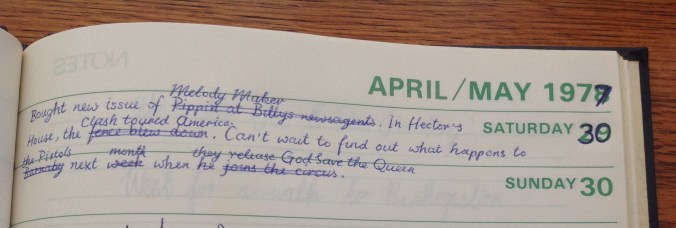 APRIL/MAY 1977
Melody Maker
Bought new issue of Pippin at Billys newsagents. In Hector's
SATURDAY 30
Clash toured America
House, the fence blew down. Can't wait to find out what happens to
the Pistols month they release God Save the Queen
Barnaby next week when he joins the circus.
SUNDAY 30